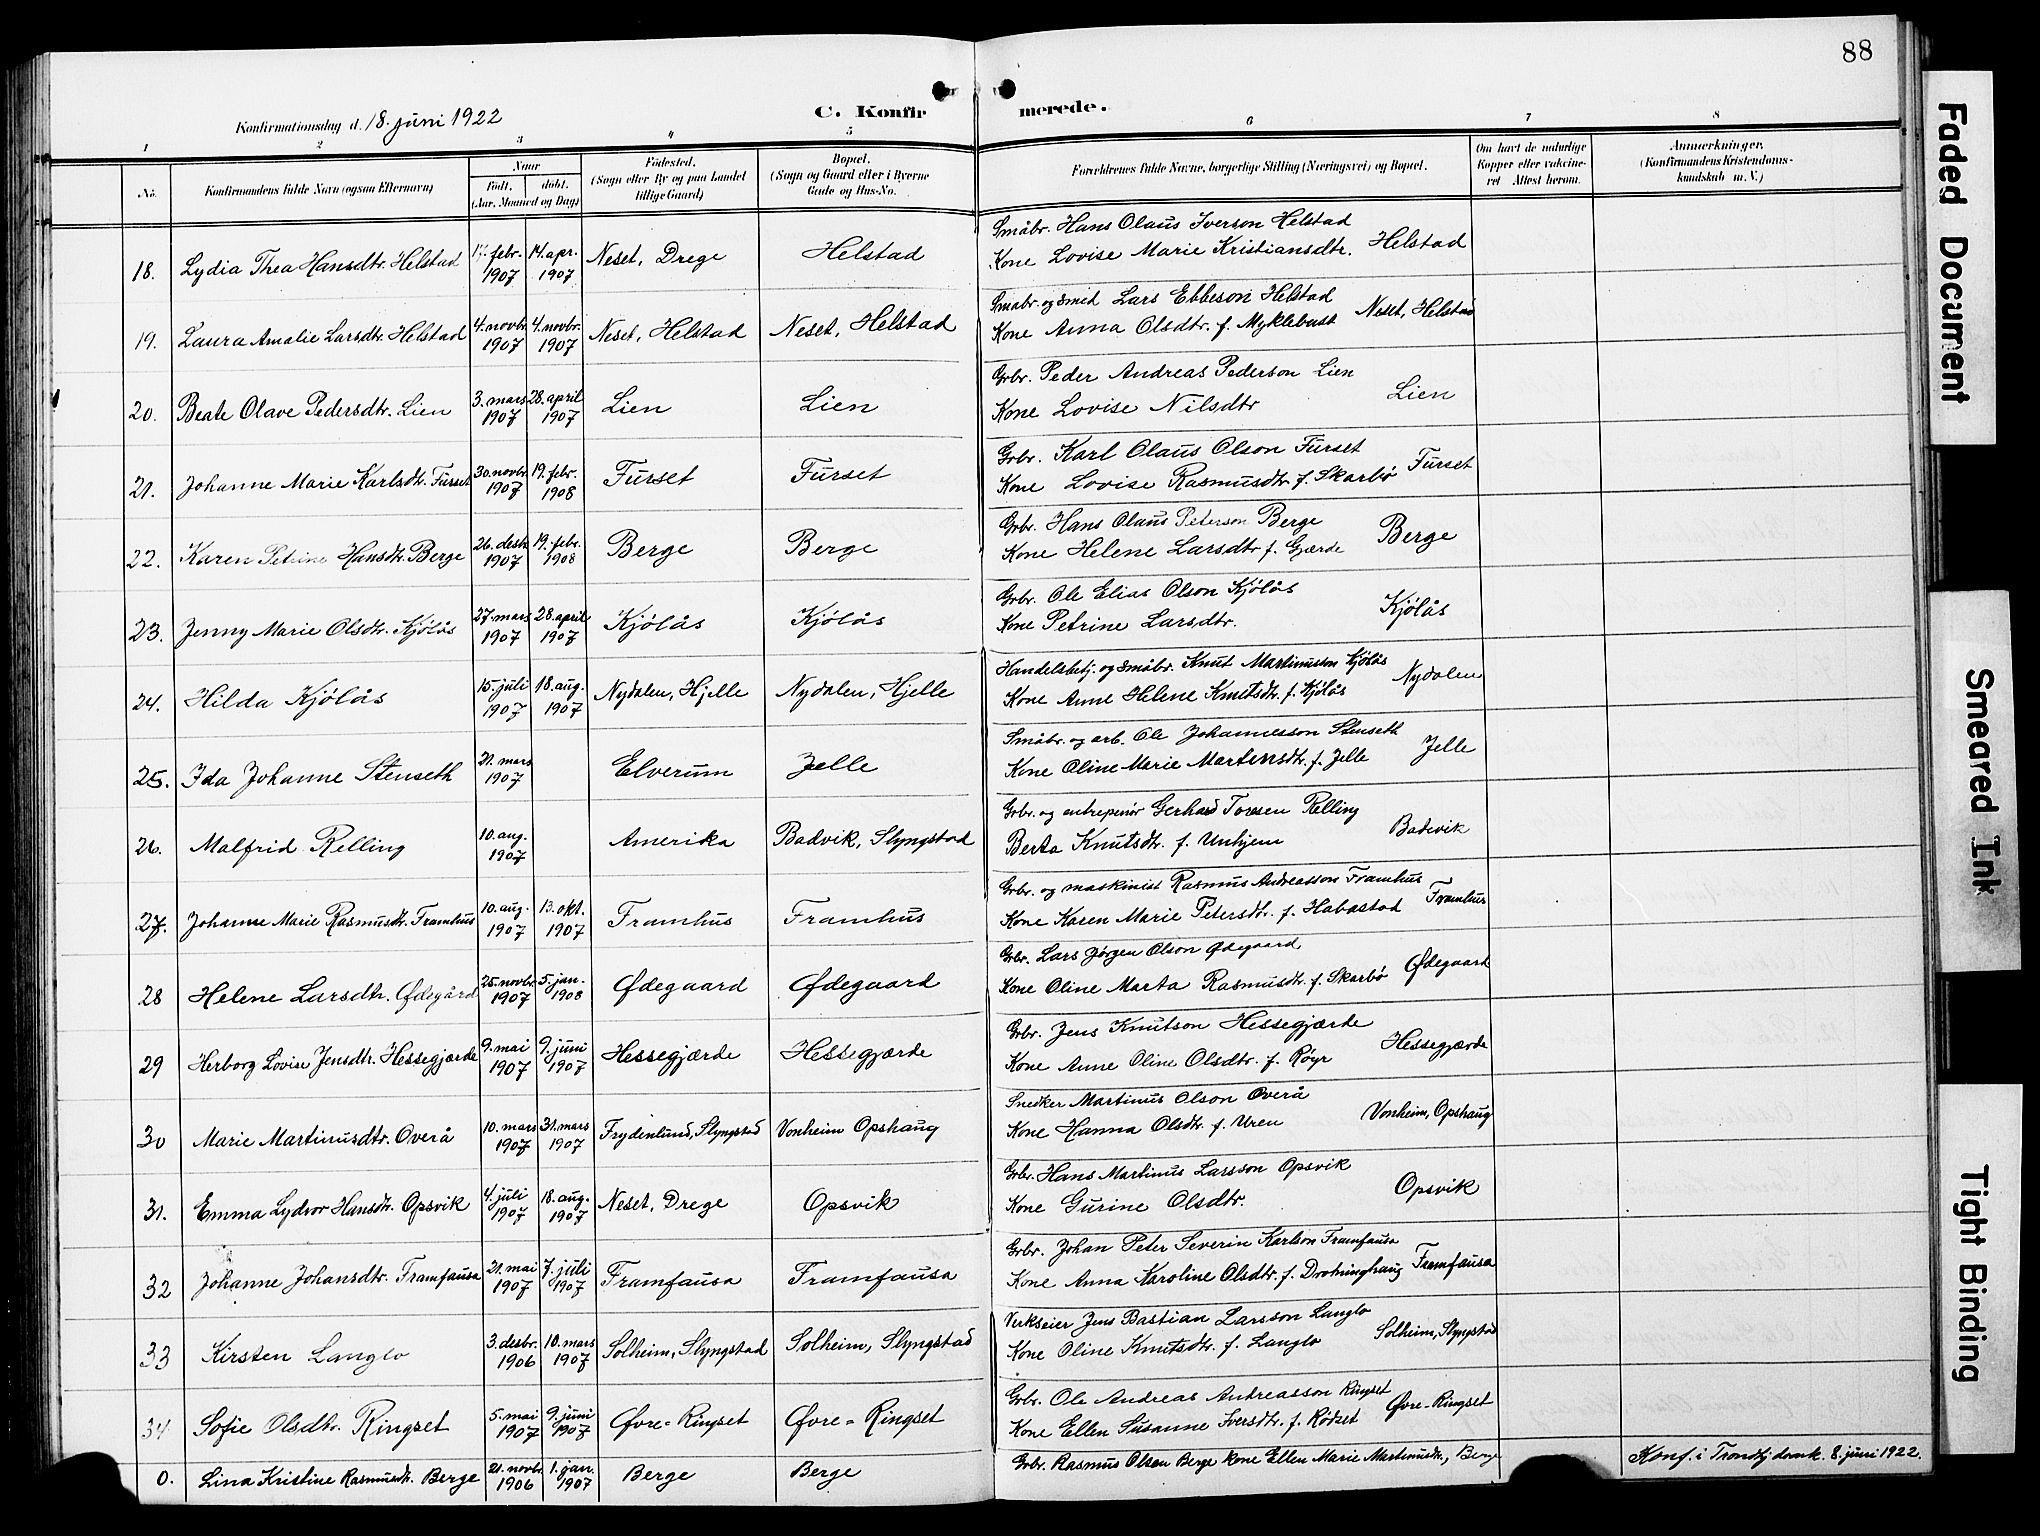 88
Konfirmationsdag d. 18. juni 1922
C. Konfirmerede.
1 2 3 4 5 6 7 8
No. Konfirmandens fulde Navn (ogsaa Efternavn) Naar født. døbt. (Aar, Maaned og Dag) Fødested. (Sogn eller By og paa Landet tillige Gaard) Bopæl. (Sogn og Gaard eller i Byerne Gade og Hus-No. Forældrenes fulde Navne, borgerlige Stilling (Næringsvei) og Bopæl. Om havt de naturlige Kopper eller vakcineret Attest herom. Anmærkninger. (Konfirmandens Kristendomskundskab m. V.)
18. Lydia Thea Hansdtr. Helstad febr. 1907 14. apr. 1907 Neset, Drege Helstad Småbr. Hans Olaus Iverson Helstad
Kone Lovise Marie Kristiansdtr. Helstad
19. Laura Amalie Larsdtr. Helstad 4. novbr. 1907 4. novbr. 1907 Neset, Helstad Neset, Helstad Småbr. og smed Lars Ebbeson Helstad
Kone Anna Olsdtr. f. Myklebust Neset, Helstad
20. Beate Olave Pedersdtr. Lien 3. mars 1907 28. april 1907 Lien Lien Grbr. Peder Andreas Pederson Lien
Kone Lovise Nilsdtr Lien
21. Johanne Marie Karlsdtr. Furset 30. novbr. 1907 19. febr. 1908 Furset Furset Grbr. Karl Olaus Olson Furset
Kone Lovise Rasmusdtr. f. Skarbø Furset
22. Karen Petrine Hansdtr. Berge 26. desbr. 1907 19. febr. 1908 Berge Berge Grbr. Hans Olaus Peterson Berge
Kone Helene Larsdtr f. Gjærde Berge
23. Jenny Marie Olsdtr. Kjölås 27. mars 1907 28. april 1907 Kjölås Kjölås Grbr. Ole Elias Olson Kjölås
Kone Petrine Larsdtr. Kjölås
24. Hilda Kjölås 15. juli 1907 18. aug. 1907 Nydalen, Hjelle Nydalen, Hjelle Handelsbetj. og småbr. Knut Martinusson Kjölås
Kone Anne Helene Knutsdtr. f. Kjölås Nydalen
25. Ida Johanne Stenseth 21. mars 1907 Elverum Jelle Småbr. og arb. Ole Johannesson Stenseth
Kone Oline Marie Martensdtr. f. Jelle Jelle
26. Malfrid Relling 10. aug. 1907 Amerika Badvik, Slyngstad Grbr. og entrepenør Gerhard Toresen Relling
Berta Knutsdtr. f. Unhjem Badvik
27. Johanne Marie Rasmusdtr. Framhus 10. aug. 1907 13. okt. 1907 Framhus Framhus Grbr. og maskinist Rasmus Andreasson Framhus
Kone Karen Marie Petersdtr. f. Habostad Framhus
28 Helene Larsdtr. Ødegård 25. novbr. 1907 5. jan. 1908 Ødegaard Ødegaard Grbr. Lars Jørgen Olson Ødegaard
Kone Oline Marta Rasmusdtr. f. Skarbø Ødegaard
29 Herborg Lovise Jensdtr. Hessegjærde 9. mai 1907 9. juni 1907 Hessegjærde Hessegjærde Grbr. Jens Knutson Hessegjærde
Kone Anne Oline Olsdtr. f. Røyr Hessegjærde
30 Marie Martinusdtr. Overå 10. mars 1907 31. mars 1907 Frydenlund, Slyngstad Vonheim Opshaug Snedker Martinus Olson Overå
Kone Hanna Olsdtr. f. Uren Vonheim, Opshaug
31. Emma Lydvor Hansdtr. Opsvik 4. juli 1907 18. aug. 1907 Neset, Drege Opsvik Grbr. Hans Martinus Larsson Opsvik
Kone Gurine Olsdtr. Opsvik
32 Johanne Johansdtr. Framfausa 21. mai 1907 7. juli 1907 Framfausa Framfausa Grbr. Johan Peter Severin Karlson Framfausa
Kone Anna Karoline Olsdtr. f. Drotninghaug Framfausa
33 Kirsten Langlo 3. desbr. 1906 10. mars 1907 Solheim, Slyngstad Solheim, Slyngstad Verkseier Jens Bastian Larsson Langlo
Kone Oline Knutsdtr. f. Langlo Solheim, Slyngstad
34 Sofie Olsdtr. Ringset 5. mai 1907 9. juni 1907 Øvre-Ringset Øvre-Ringset Grbr. Ole Andreas Andreasson Ringset
Kone Ellen Susanne Iversdtr. f. Rødset Øvre-Ringset
0. Lina Kristine Rasmusdtr. Berge 21. novbr. 1906 1. jan. 1907 Berge Berge Grbr. Rasmus Olsen Berge kone Ellen Marie Martinusdtr., Berge Konf. i Trondhj. domk. 8. juni 1922.
Faded Document
Smeared Ink
Tight Binding